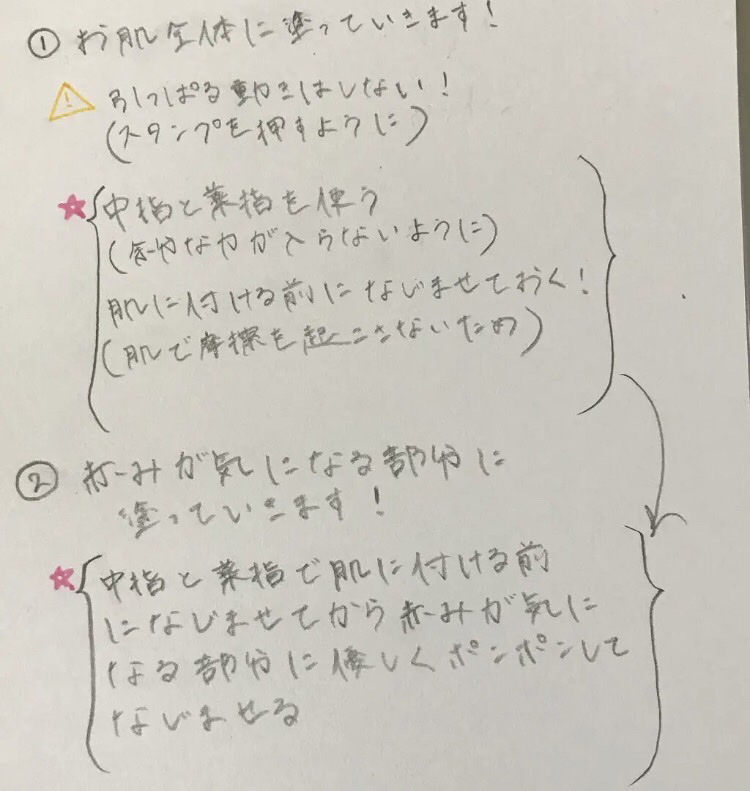 ① お肌全体に塗っていきます！
⚠ 引っぱる動きはしない！
(スタンプを押すように)
★ 中指と薬指を使う
(余分な力が入らないように)
肌に付ける前になじませておく！
(肌で摩擦を起こさないため)
② 赤みが気になる部分に
塗っていきます！
★ 中指と薬指で肌に付ける前
になじませてから赤みが気に
なる部分に優しくポンポンして
なじませる